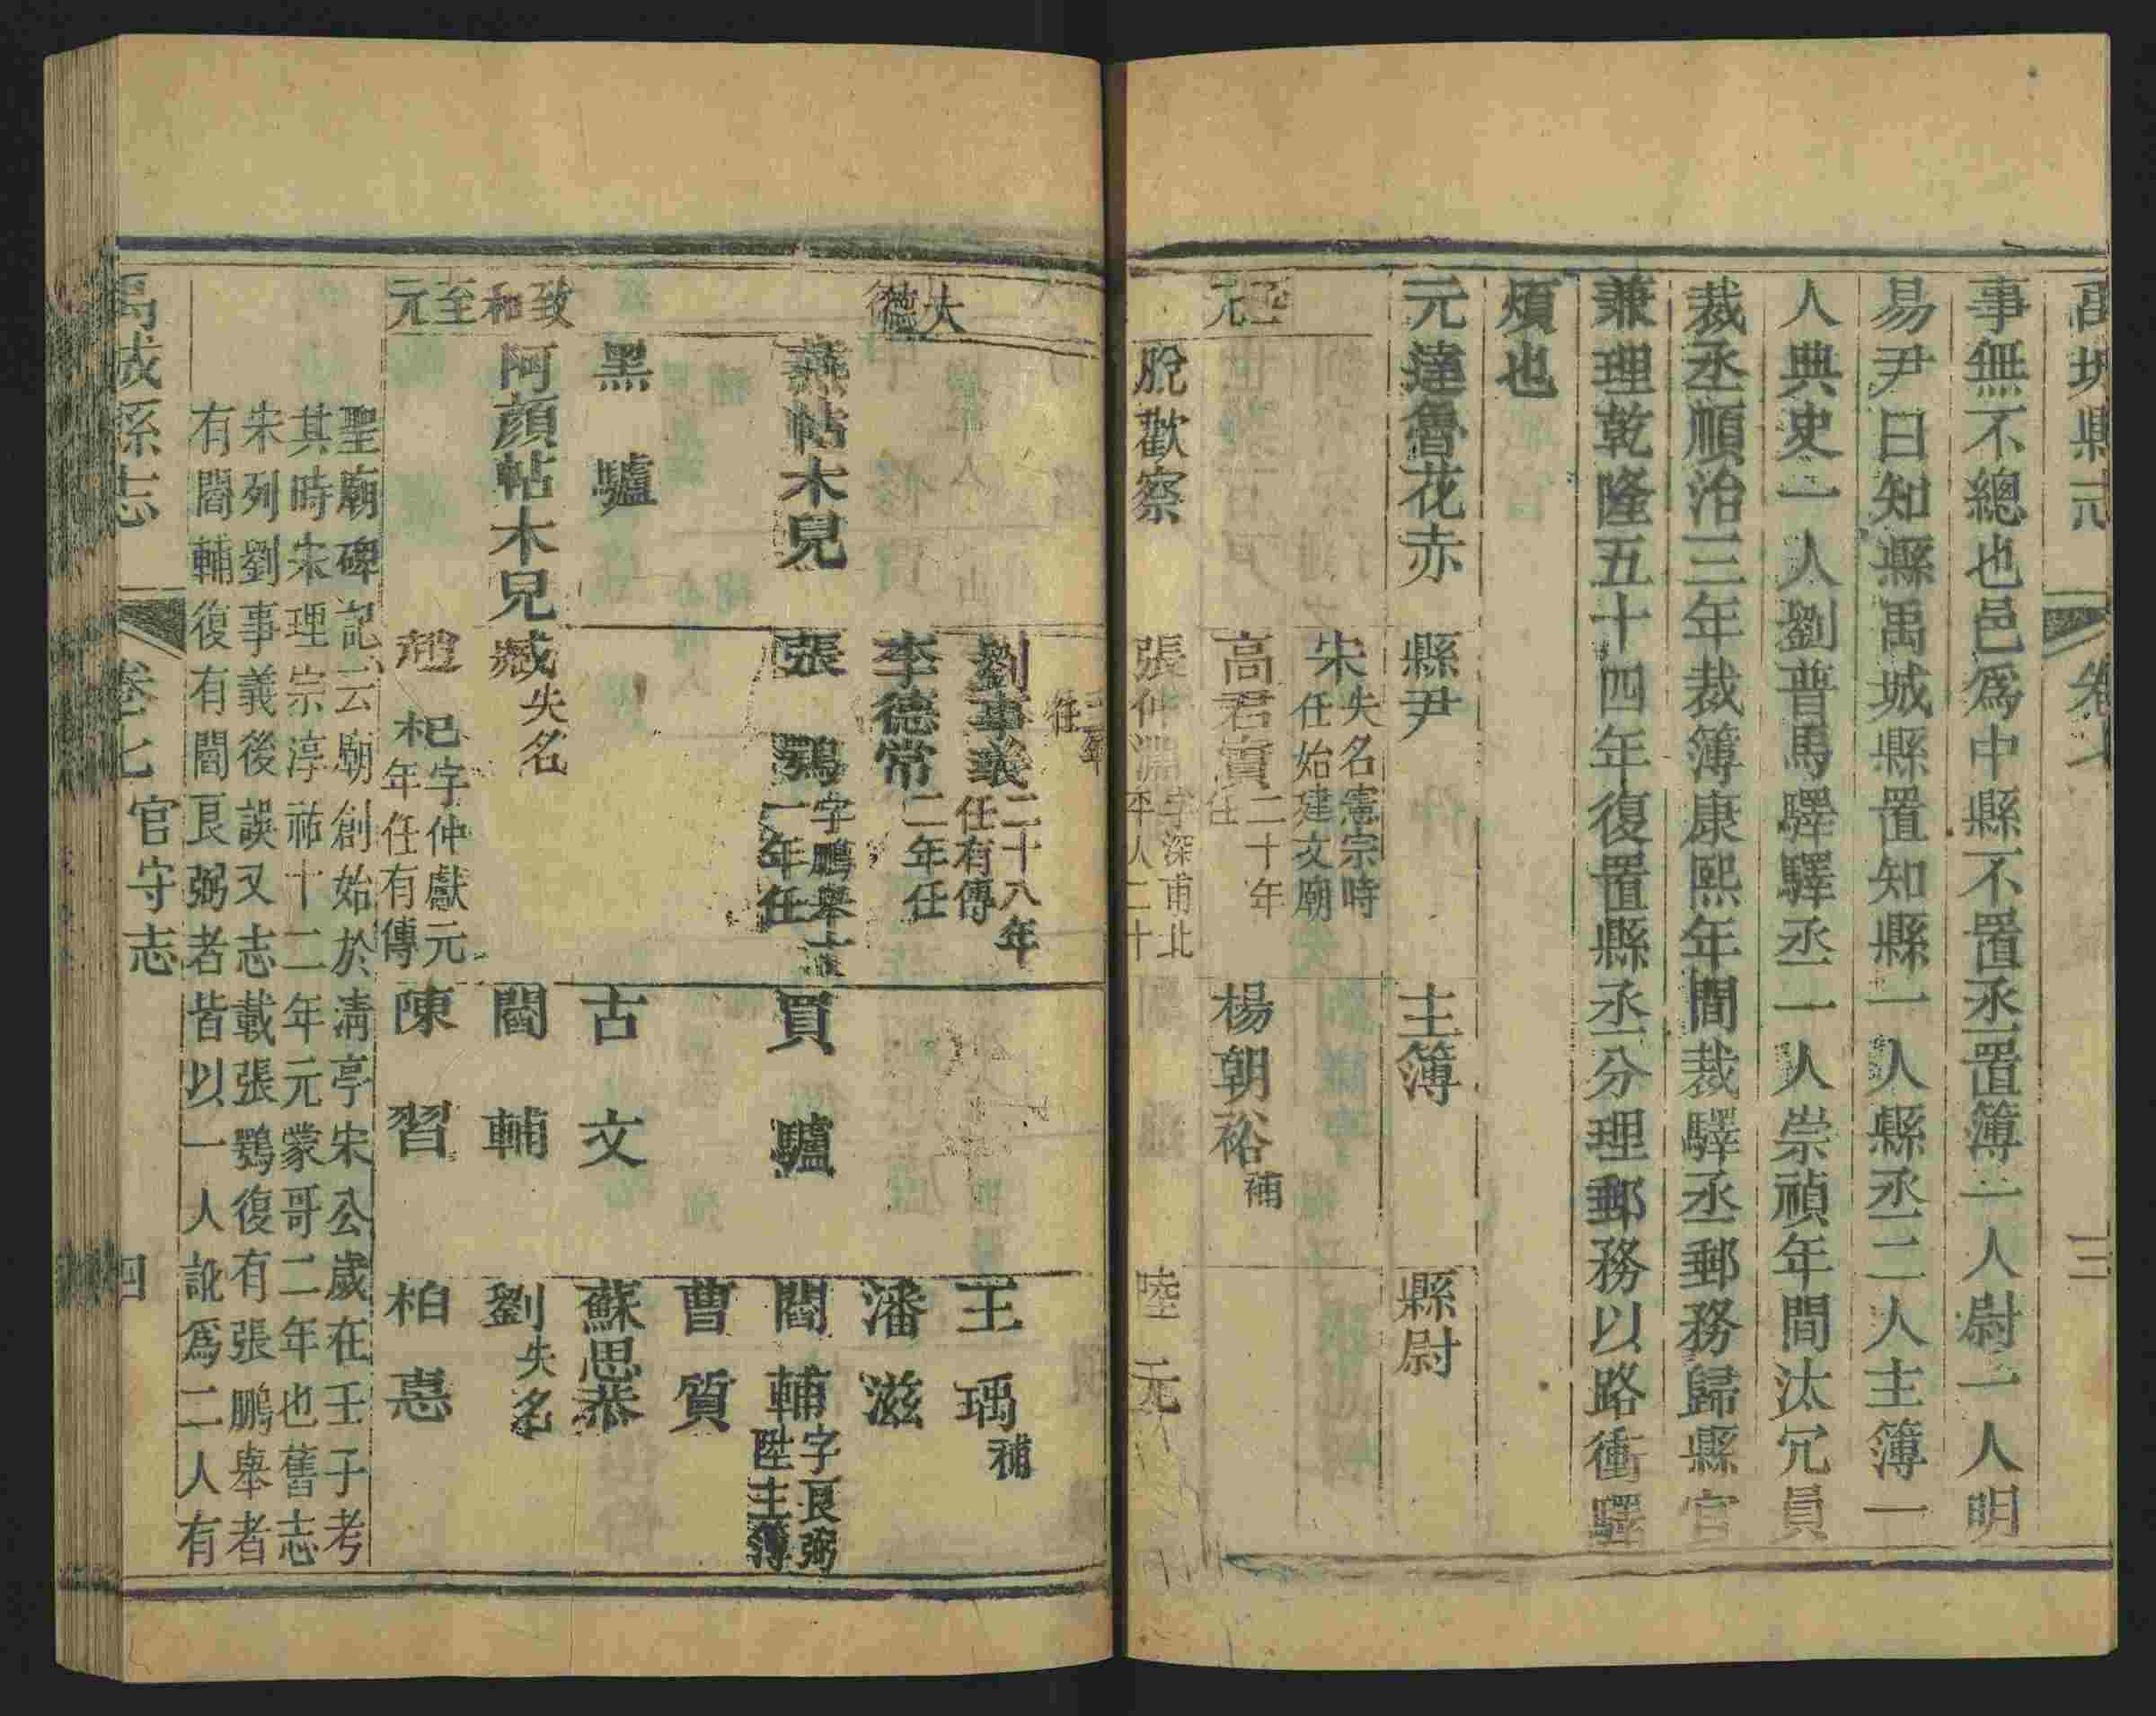 禹城縣志
卷七
三
事無不總也邑爲中縣不置丞置簿一人尉一人明
易尹曰知縣禹城縣置知縣一人縣丞二人主簿一
人典史一人劉普馬驛驛丞一人崇禎年間汰冗員
裁丞順治三年裁簿康熙年間裁驛丞郵務歸縣官
兼理乾隆五十四年復置縣丞分理郵務以路衝驛
煩也
元達魯花赤
縣尹
主簿
縣尉
宋失名憲宗時
任始建文廟
至元
高君實二十年
任
楊朝裕補
脫歡察
張仲淵字深甫北
平人二十
陸元
三年
任
劉事義二十八年
任有傳
王瑀補
大德
李德常二年任
潘滋
燕帖木兒
張鶚字鵬舉十
一年任
買驢
閻輔字良弼
陞主簿
曹質
黑驢
古文
蘇思恭
致和
阿顏帖木兒
臧失名
閻輔
劉失名
至元
趙杞字仲獻元
年任有傳
陳習
柏惪
聖廟碑記云廟創始於淸亭宋公歲在壬子考
其時宋理宗淳祐十二年元蒙哥二年也舊志
朱列劉事義後誤又志載張鶚復有張鵬舉者
有閻輔復有閻良弼者皆以一人訛爲二人有
禹城縣志
卷七
官守志
四